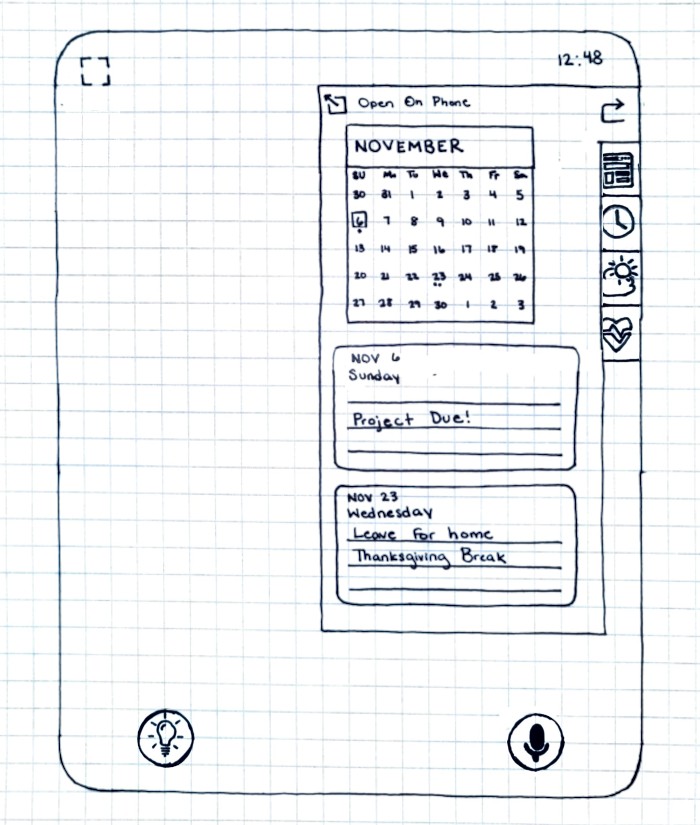 12:48
Open On Phone
NOVEMBER
SU Mo Tu We Th Fr Sa
30 31 1 2 3 4 5
6 7 8 9 10 11 12
13 14 15 16 17 18 19
20 21 22 23 24 25 26
27 28 29 30 1 2 3
NOV 6
Sunday
Project Due!
NOV 23
Wednesday
Leave For home
Thanksgiving Break